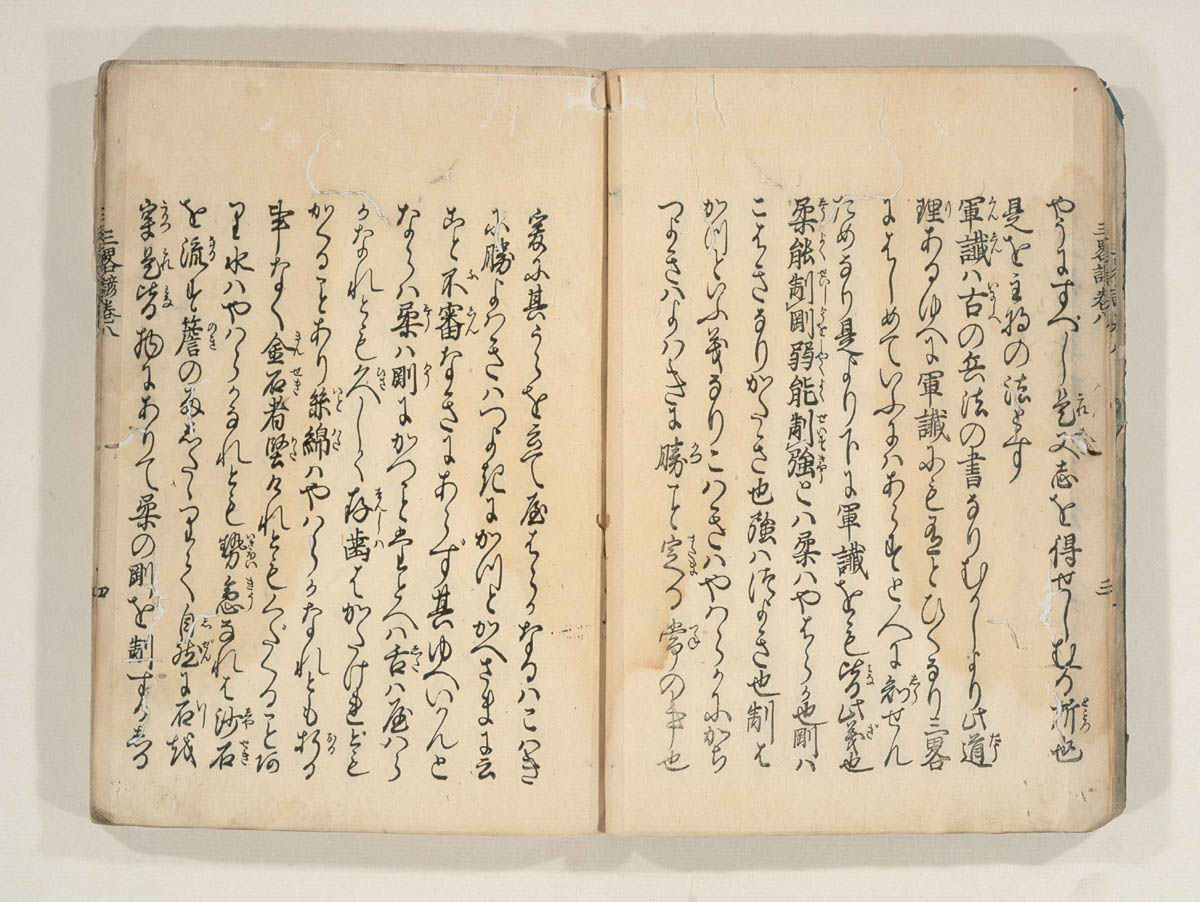 やうにすべし是又志を得せしむる所也
是を主將の法とす
軍讖ハ古の兵法の書なりむかしより此道
理あるゆへに軍讖にも有とひくなり三畧
にはじめていふにハあらずと人に知せん
ためなり是より下に軍讖をもつ皆此義也
柔能制剛弱能制強とハ柔ハやはらか也剛ハ
こはきなりかたき也強ハつよき也制は
かつといふ義なりこハきハやハらかにかち
つよきハよハきに勝こと定る常の事也
三畧諺巻八
三
爰に其うらを立て屋はらかなるハこハき
に勝よハきハつよきにかつとかへさまに云
こと不審なきにあらず其ゆへいかんと
ならハ柔ハ剛にかつことたとへハ舌ハ屋ハら
かなれとも久しく存歯はかたけれども
かくることあり絲綿ハやハらかなれとも折る
事なく金石者堅けれともくだくること有
り水ハやハらかなれとも勢急なれは沙石
を流す簷の雨したゝりて自然に石を
穿是皆物にありて柔の剛を制するしる
三畧諺巻八
四